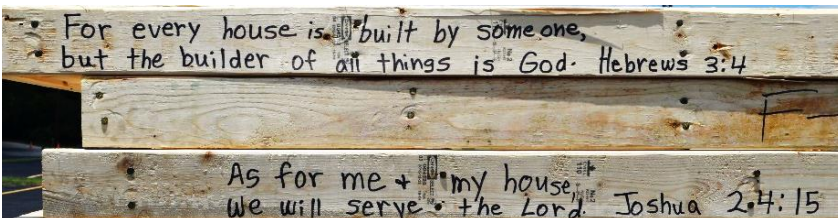 For every house is built by someone,
but the builder of all things is God. Hebrews 3:4
F
As for me + my house,
we will serve the Lord. Joshua 24:15